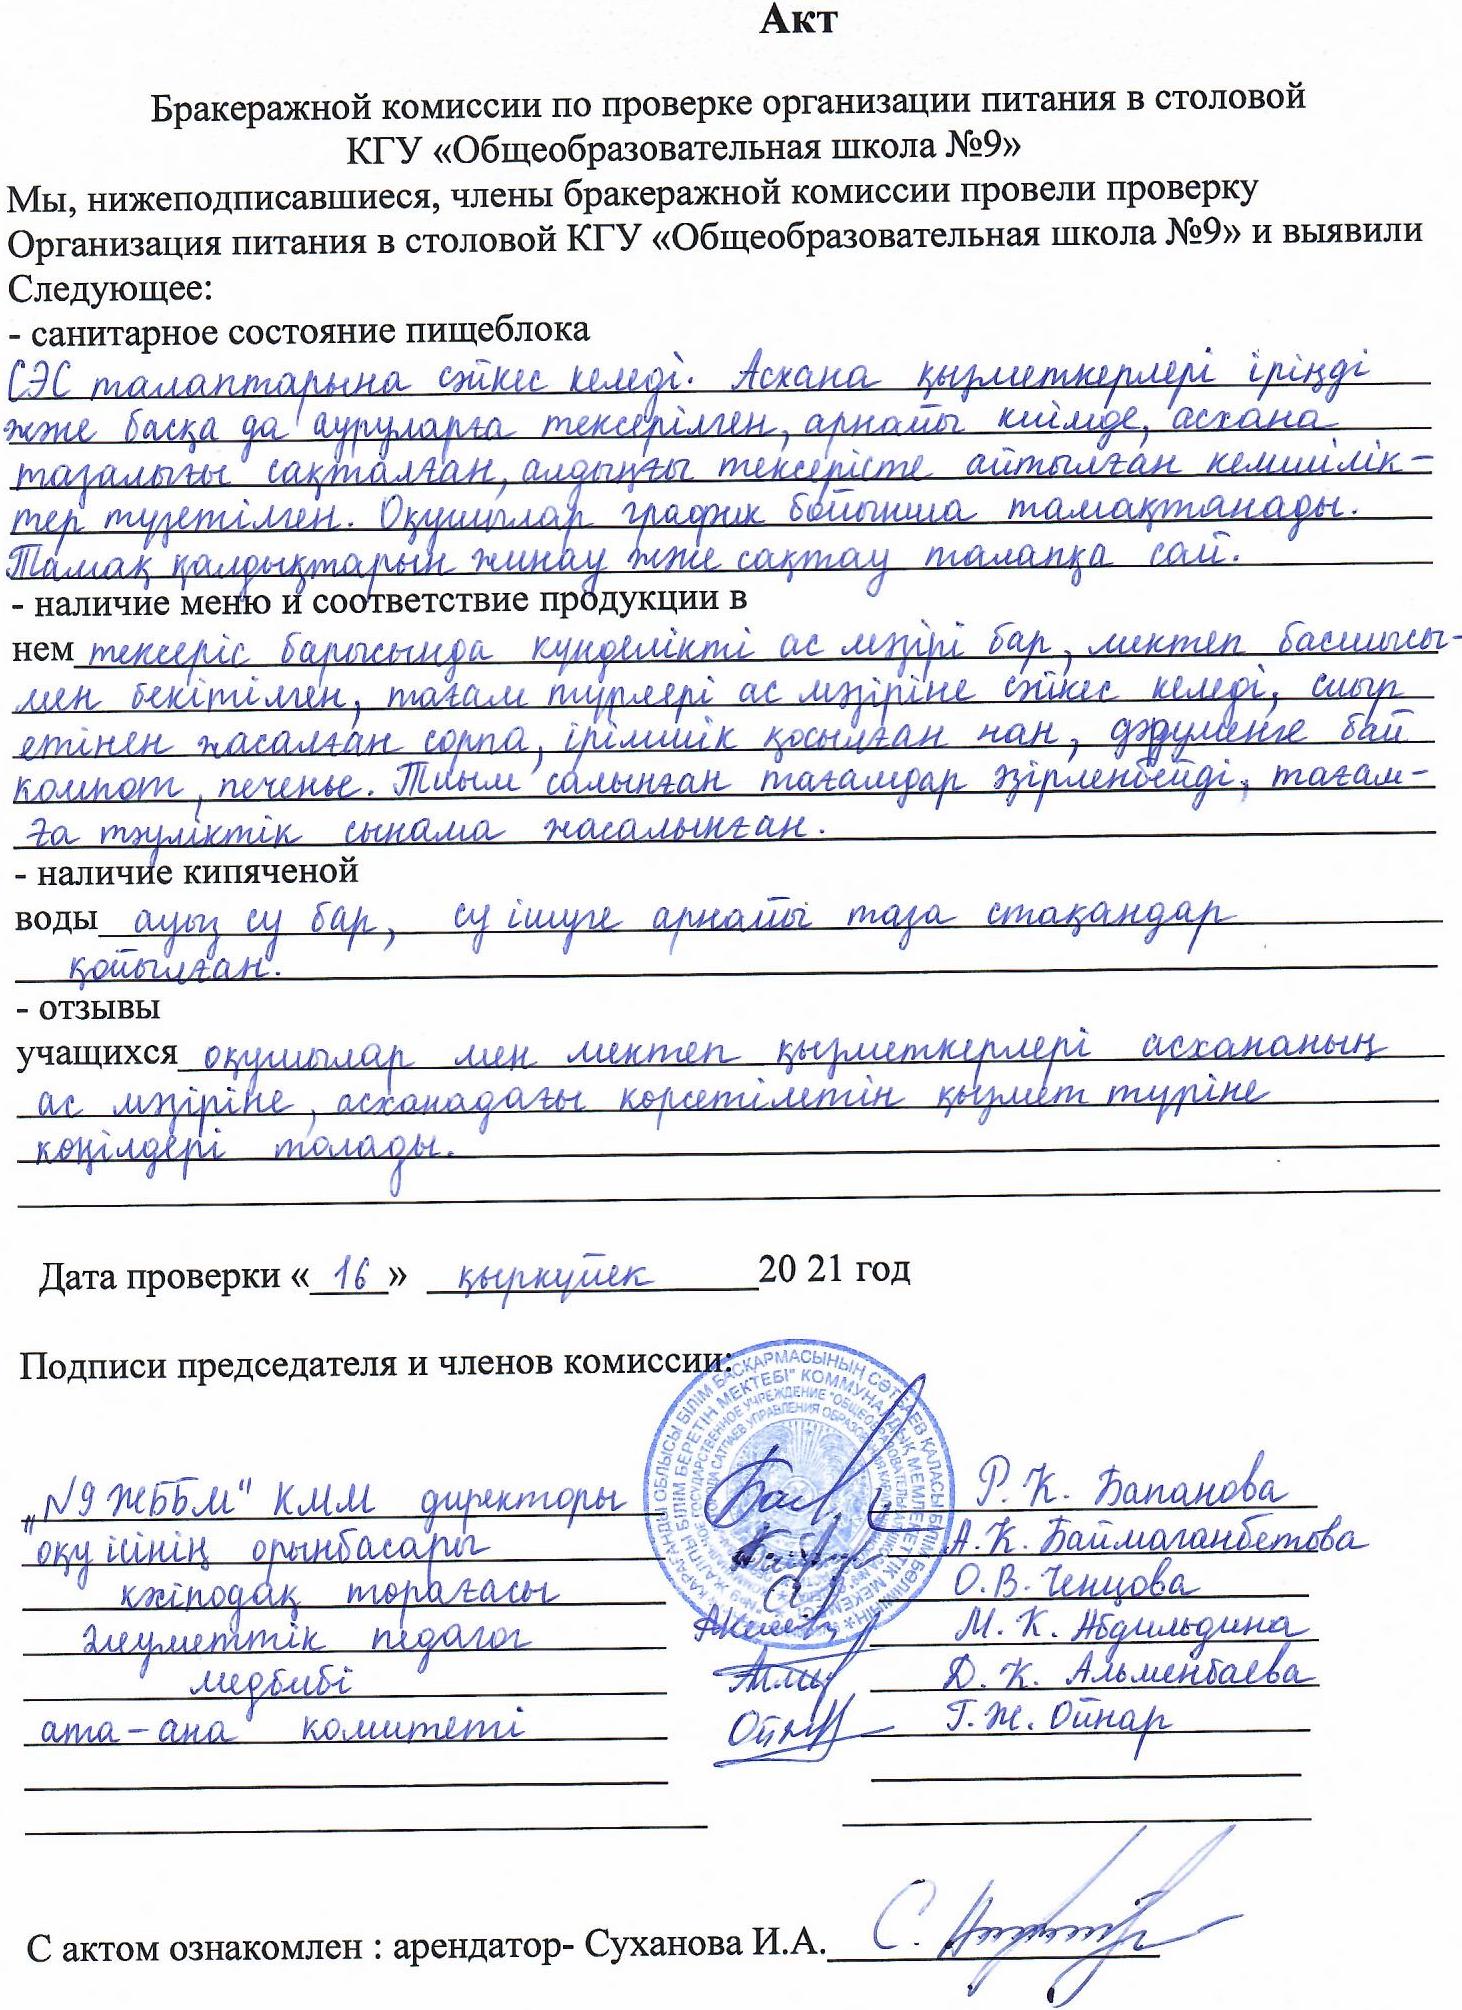 Акт
Бракеражной комиссии по проверке организации питания в столовой
КГУ «Общеобразовательная школа №9»
Мы, нижеподписавшиеся, члены бракеражной комиссии провели проверку
Организация питания в столовой КГУ «Общеобразовательная школа №9» и выявили
Следующее:
- санитарное состояние пищеблока
СЭС талаптарына сәйкес келеді. Асхана қызметкерлері іріңді
және басқа да ауруларға тексерілген, арнайы киімде, асхана
тазалығы сақталған, алдыңғы тексерісте айтылған кемшілік-
тер түзетілген. Оқушылар график бойынша тамақтанады.
Тамақ қалдықтарын жинау және сақтау талапқа сай.
- наличие меню и соответствие продукции в
нем тексеріс барысында күнделікті ас мәзірі бар, мектеп басшысы-
мен бекітілген, тағам түрлері ас мәзіріне сәйкес келеді, сиыр
етінен жасалған сорпа, ірімшік қосылған нан, дәруменге бай
компот, печенье. Тиым салынған тағамдар әзірленбейді, тағам-
ға тәуліктік сынама жасалынған.
- наличие кипяченой
воды ауыз су бар, су ішуге арнайы таза стақандар
қойылған.
- отзывы
учащихся оқушылар мен мектеп қызметкерлері асхананың
ас мәзіріне, асханадағы көрсетілетін қызмет түріне
көңілдері толады.
Дата проверки « 16 » қыркүйек 20 21 год
Подписи председателя и членов комиссии:
„№9 ЖББМ" КММ директоры Р. К. Бапанова
оқу ісінің орынбасары А.К. Баймаганбетова
кәсіподақ төрағасы О.В. Ченцова
әлеуметтік педагог М. К. Абдильдина
медбибі Д. К. Альменбаева
ата-ана комитеті Г. Ж. Ойнар
С актом ознакомлен : арендатор- Суханова И.А.